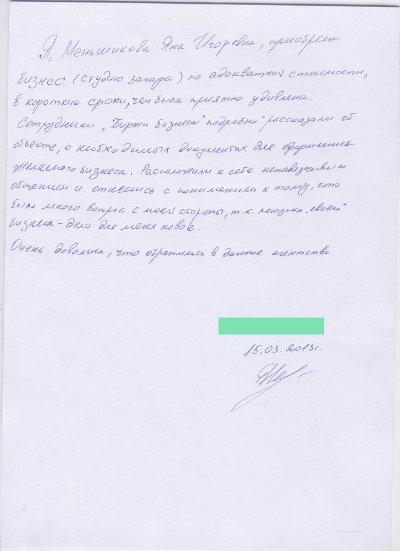 Я, Меньшикова Яна Игоревна, приобрела
бизнес (студию загара) по адекватной стоимости,
в короткие сроки, чем была приятно удивлена.
Сотрудники „Биржи бизнеса" подробно рассказали об
объекте, о необходимых документах для оформления
желаемого бизнеса. Расположили к себе ненавязчивым
общением и отнеслись с пониманием к тому, что
было много вопрос с моей стороны, т.к. покупка „своего"
бизнеса - дело для меня новое.
Очень довольна, что обратилась в данное агентство.
15.03.2013г.